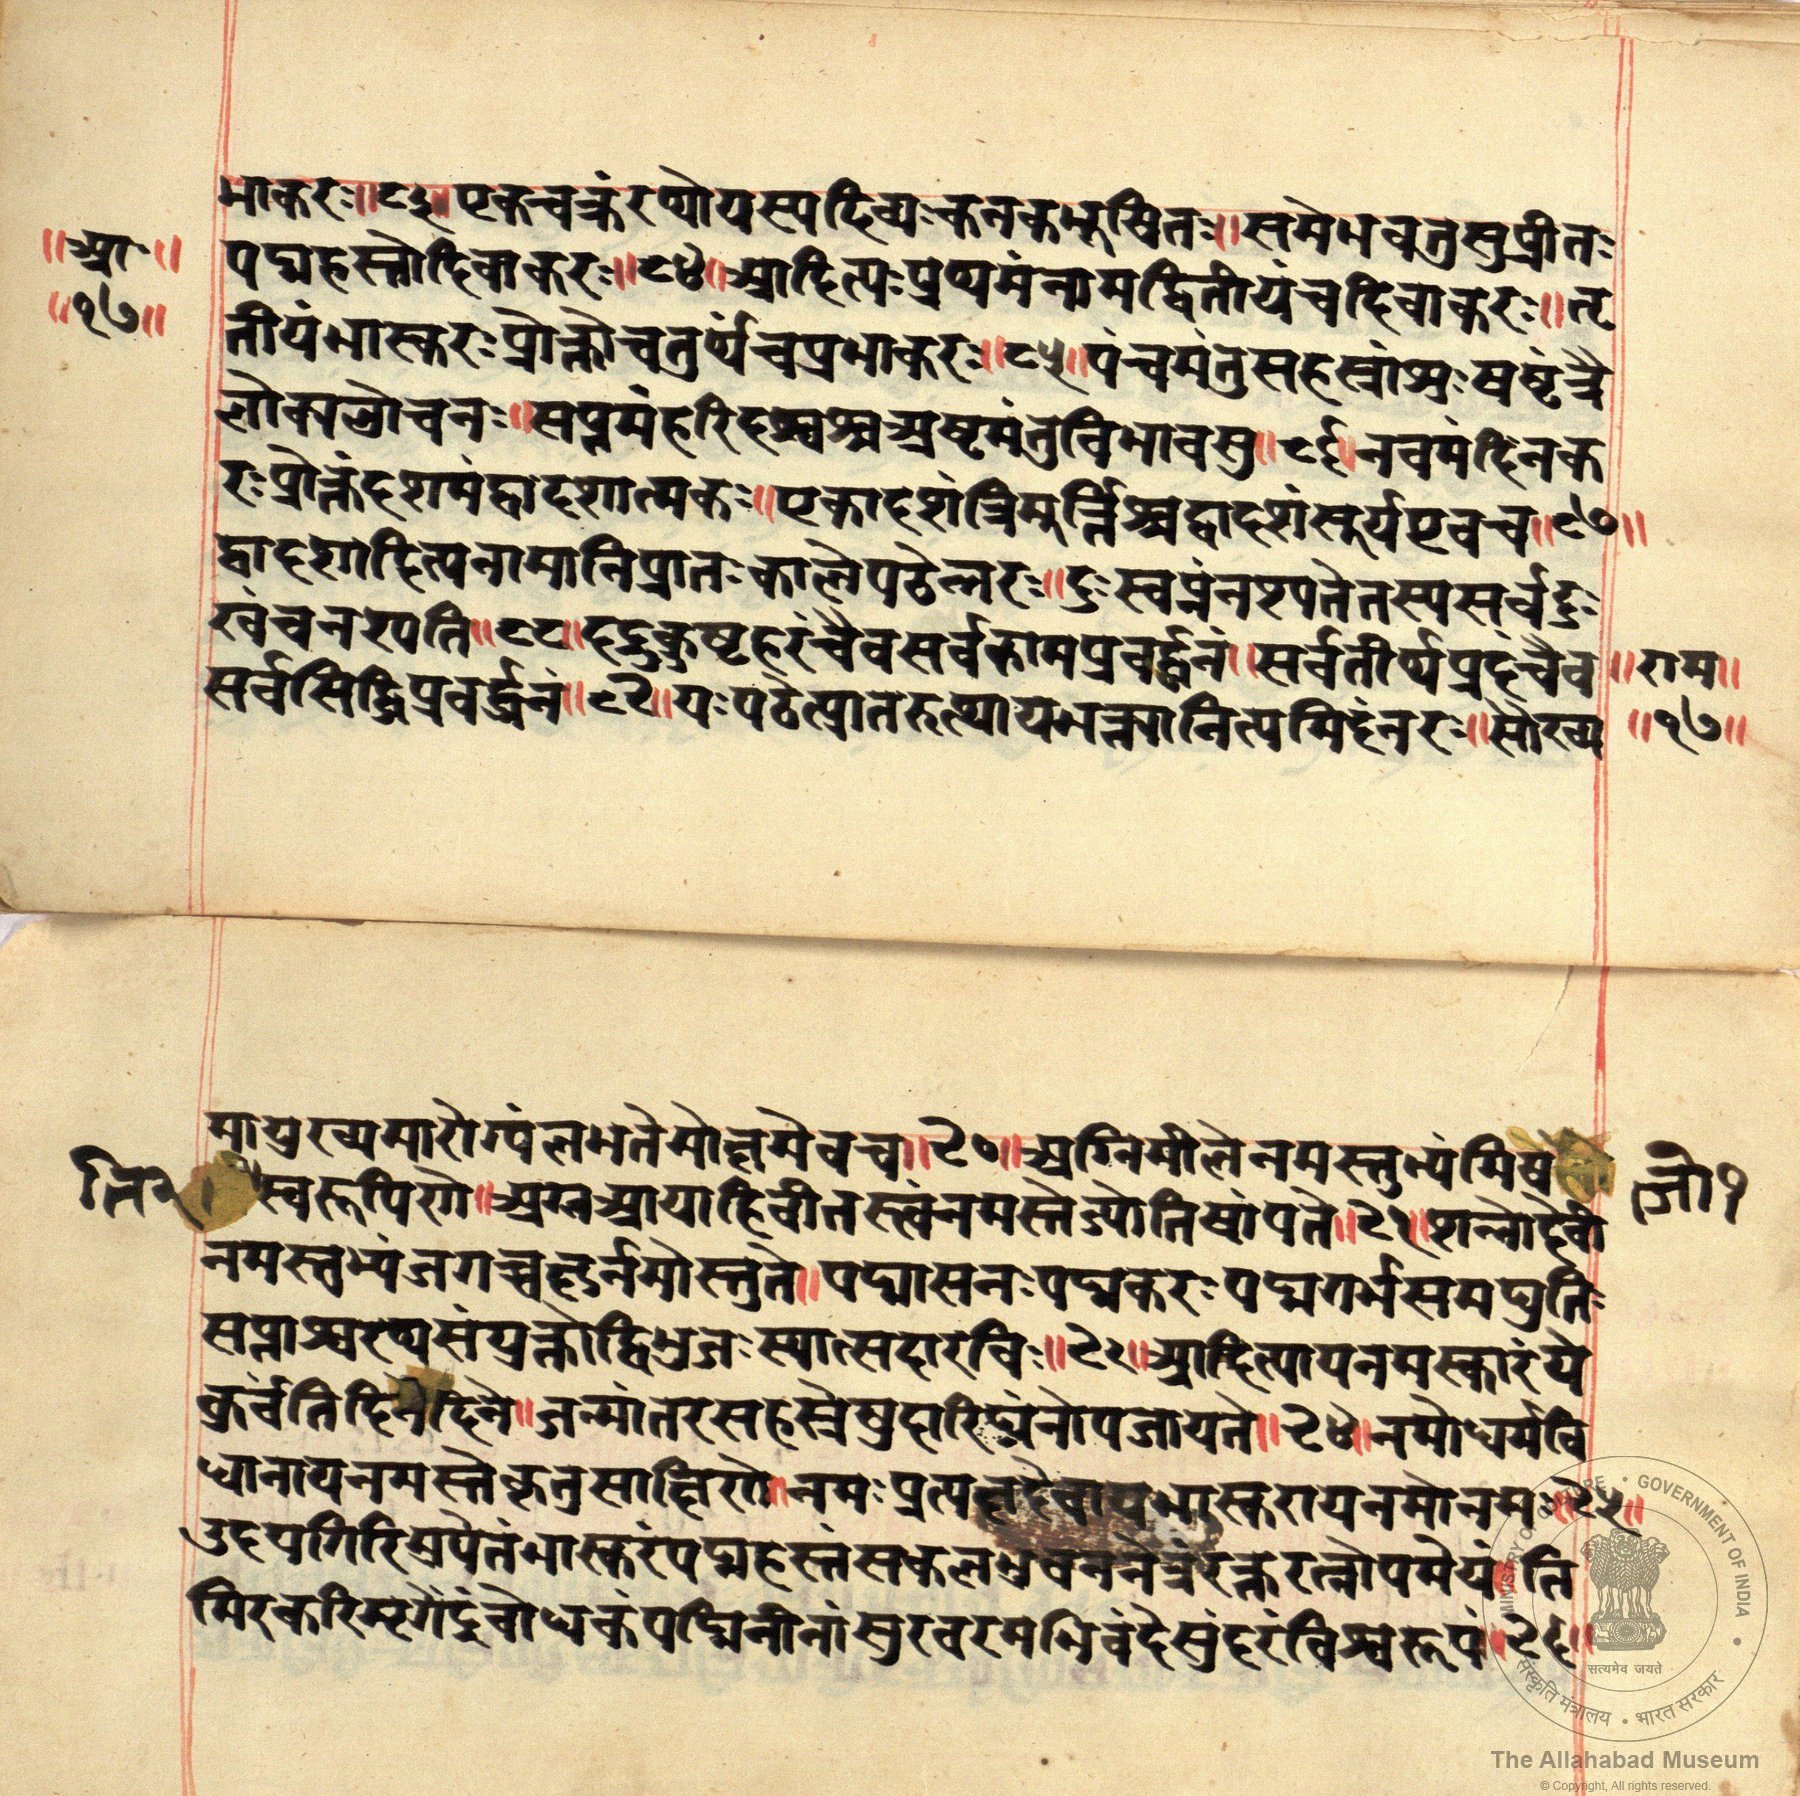 भाकरः॥८३॥एकचक्रंरथोयस्यदिव्यःकनकभूषितः॥समेभवतुसुप्रीतः
॥आ॰॥
पद्महस्तोदिवाकरः॥८४॥आदित्यःप्रथमंनामद्वितीयंचदिवाकरः॥तृ
॥१७॥
तीयंभास्करःप्रोक्तोचतुर्थंचप्रभाकरः॥८५॥पंचमंतुसहस्रांशुःषष्टंत्रै
लोक्यलोचनः॥सप्तमंहरिदश्वश्चअष्टमंतुविभावसु॥८६॥नवमंदिनक
रःप्रोक्तंदशमंद्वादशात्मकः॥एकादशंत्रिमूर्तिश्चद्वादशंसूर्यएवच॥८७॥
द्वादशादित्यनामानिप्रातःकालेपठेन्नरः॥दुःस्वप्नंनश्यतेतस्यसर्वदुः
खंचनश्यति॥८८॥दद्रुकुष्टहरंचैवसर्वकामप्रवर्द्धनं॥सर्वतीर्थप्रदंचैव
॥राम॥
सर्वसिद्धिप्रवर्द्धनं॥८९॥यःपठेत्प्रातरुत्थायभक्त्यानित्यमिदंनरः॥सौख्य
॥१७॥
मायुरव्यमारोग्यंलभतेमोक्षमेवच॥९०॥अग्निमीलेनमस्तुभ्यंमिषे
स्वरूपिणे॥अग्नआयाहिवीतस्त्वंनमस्तेज्योतिषांपते॥९१॥शन्नोदेवी
नमस्तुभ्यंजगच्चक्षुर्नमोस्तुते॥पद्मासनःपद्मकरःपद्मगर्भसमद्युतिः
सप्ताश्वरथसंयुक्तोद्विभुजःस्यात्सदारविः॥९२॥आदित्यायनमस्कारंये
कुर्वंतिदिनेदिने॥जन्मांतरसहस्रेषुदारिद्यंनोपजायते॥९४॥नमोधर्मवि
धानायनमस्तेकृतुसाक्षिणे॥नमःप्रत्यक्षदेवायभास्करायनमोनमः॥९५॥
उदयगिरिमुपेतंभास्करंपद्महस्तंसकलभुवननेत्रंरत्नरत्नोपमेयं॥ति
मिरकरिमृगेंद्रंबोधकंपद्मिनीनांसुरवरमभिवंदेसुंदरंविश्वरूपं॥९६॥
MINISTRY OF CULTURE • GOVERNMENT OF INDIA
सत्यमेव जयते
संस्कृति मंत्रालय • भारत सरकार
The Allahabad Museum
© Copyright, All rights reserved.